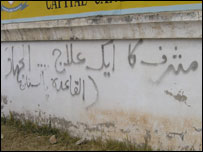 CAPITAL
مشرف کا ایک علاج ... الجہاد
(القاعدہ